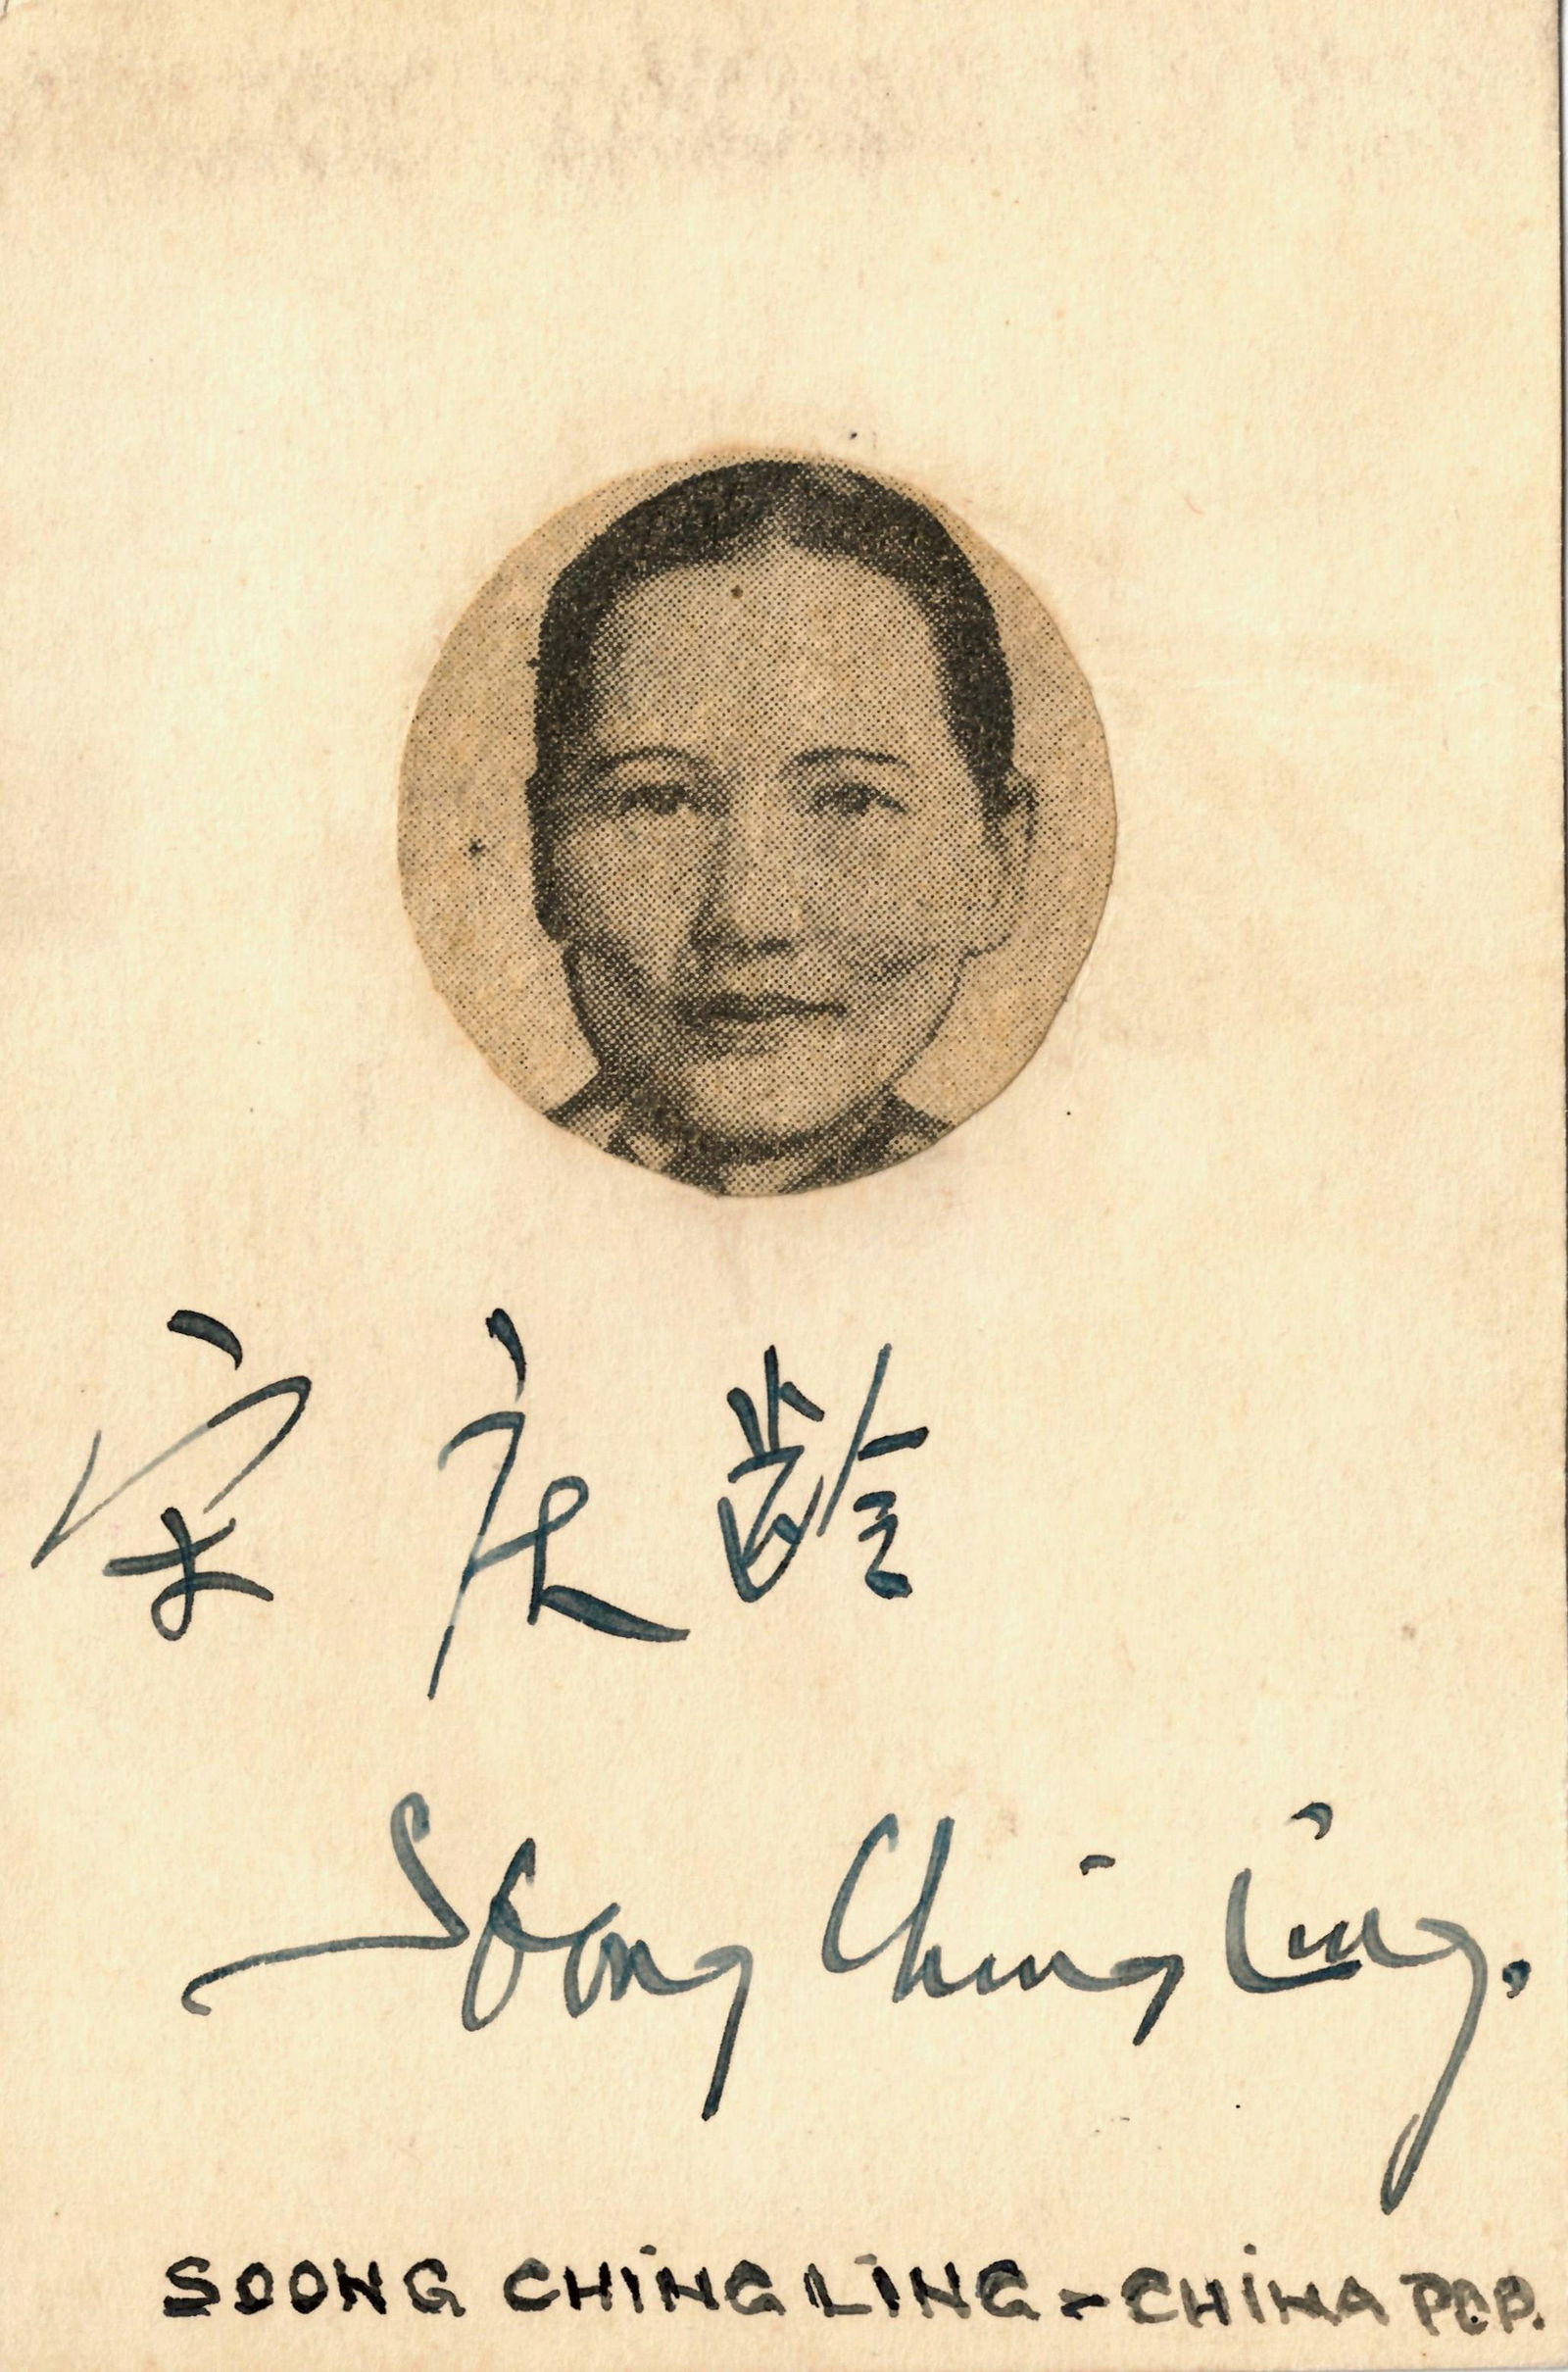 宋庆龄
Soong Ching Ling.
SOONG CHING LING - CHINA POP.